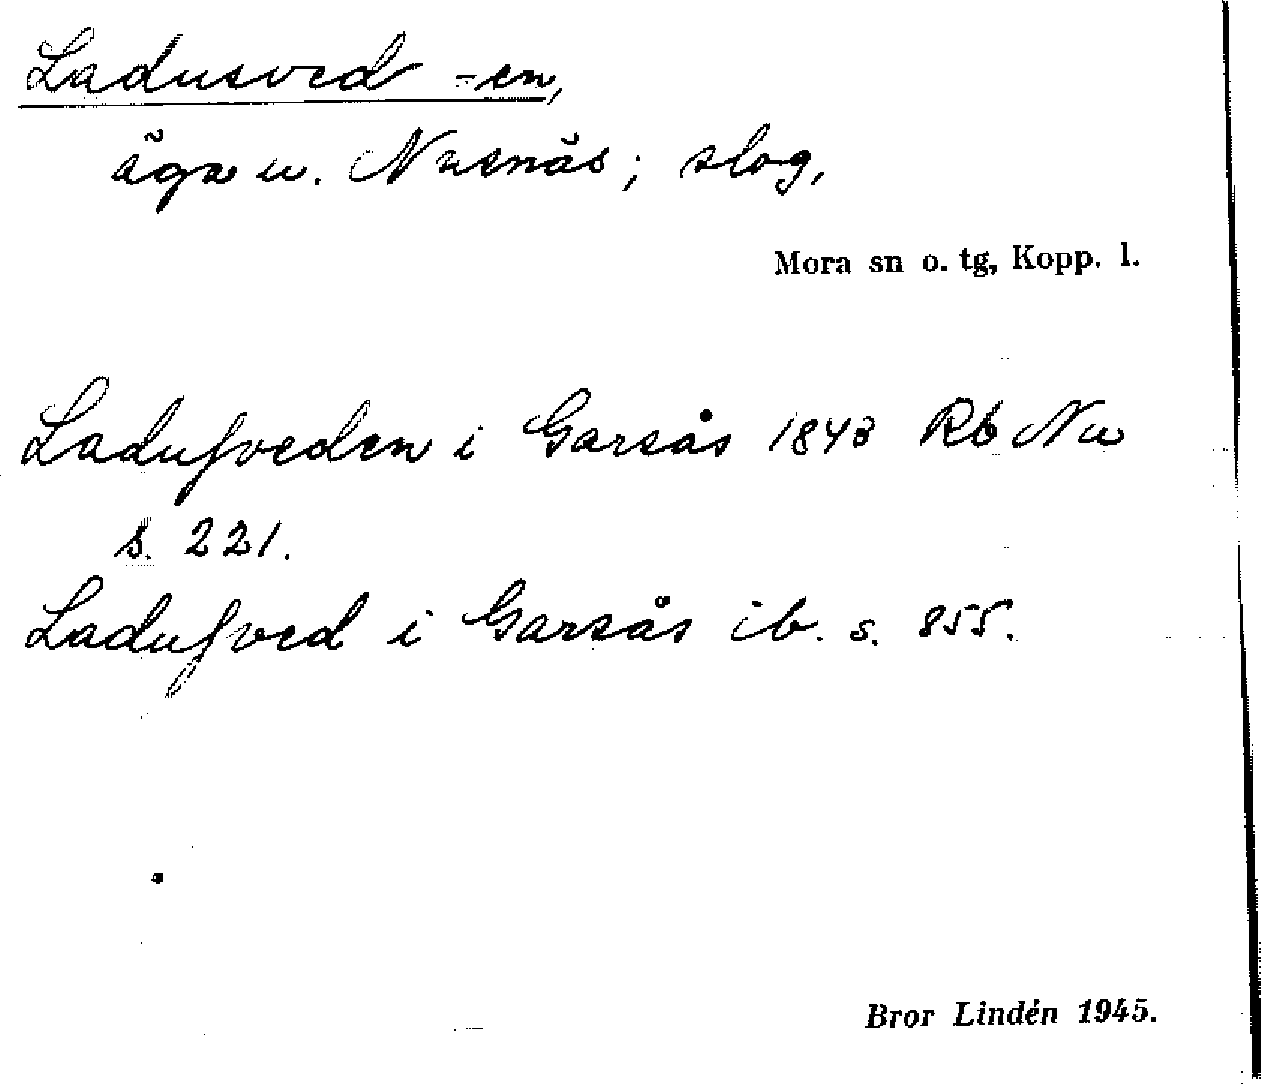 Ladusved -en,
ägor u. Nusnäs; slog,
Mora sn o. tg, Kopp. l.
Ladufveden i Garsås 1843 Rb Nu
s. 221.
Ladufved i Garsås ib. s. 855.
Bror Lindén 1945.